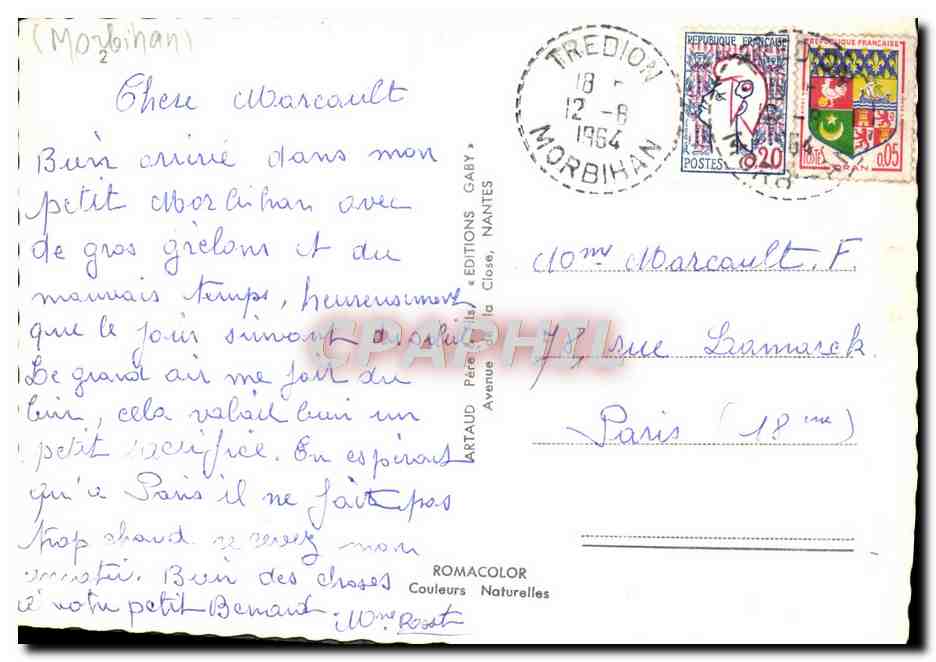 (Morbihan)
2
Chere Marcault
Bien arrivé dans mon
petit Morbihan avec
de gros grêlons et du
mauvais temps, heureusement
que le jour suivant du soleil
Le grand air me fait du
bien, cela valait bien un
petit sacrifice. En espérant
qu'à Paris il ne fait pas
trop chaud recevez mon
amitié. Bien des choses
à votre petit Benard.
Mme
ARTAUD Père Fils, « EDITIONS GABY »
Avenue de la Close, NANTES
ROMACOLOR
Couleurs Naturelles
TREDION
18
12 -8
1964
MORBIHAN
REPUBLIQUE FRANÇAISE
POSTES 0.20
REPUBLIQUE FRANÇAISE
POSTES ORAN 0.05
Mme Marcault. F.
78, rue Lamarck
Paris (18ème)
CPAPHIL